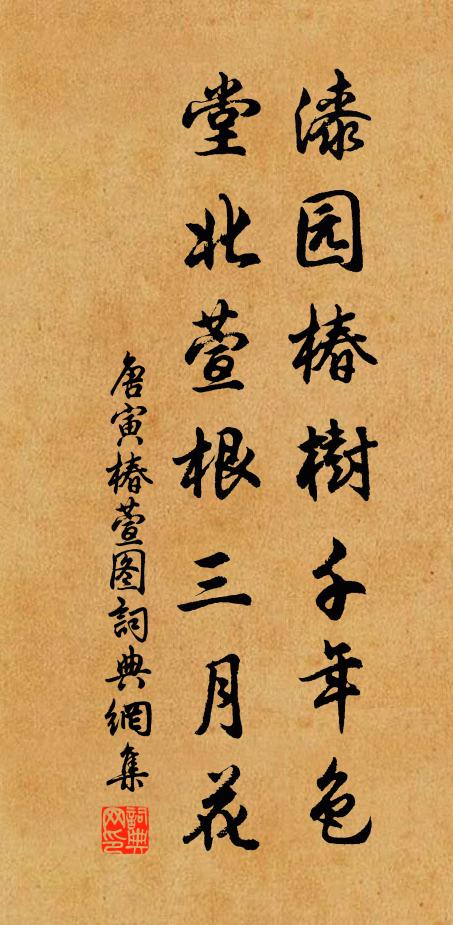 漆园椿樹千年色
堂北萱根三月花
唐寅椿萱图詞典網集
詞典网印